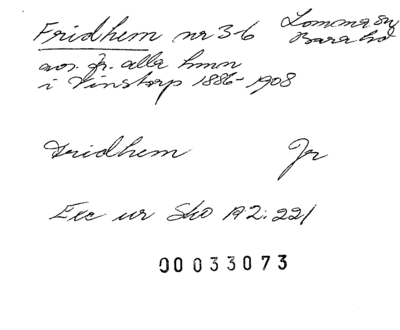 Fridhem nr 3-6 Lomma sn
Bara hd
avs. fr. alla hmn
i Vinstorp 1886-1908
Fridhem Jr
Exc ur Sko 192:221
00033073